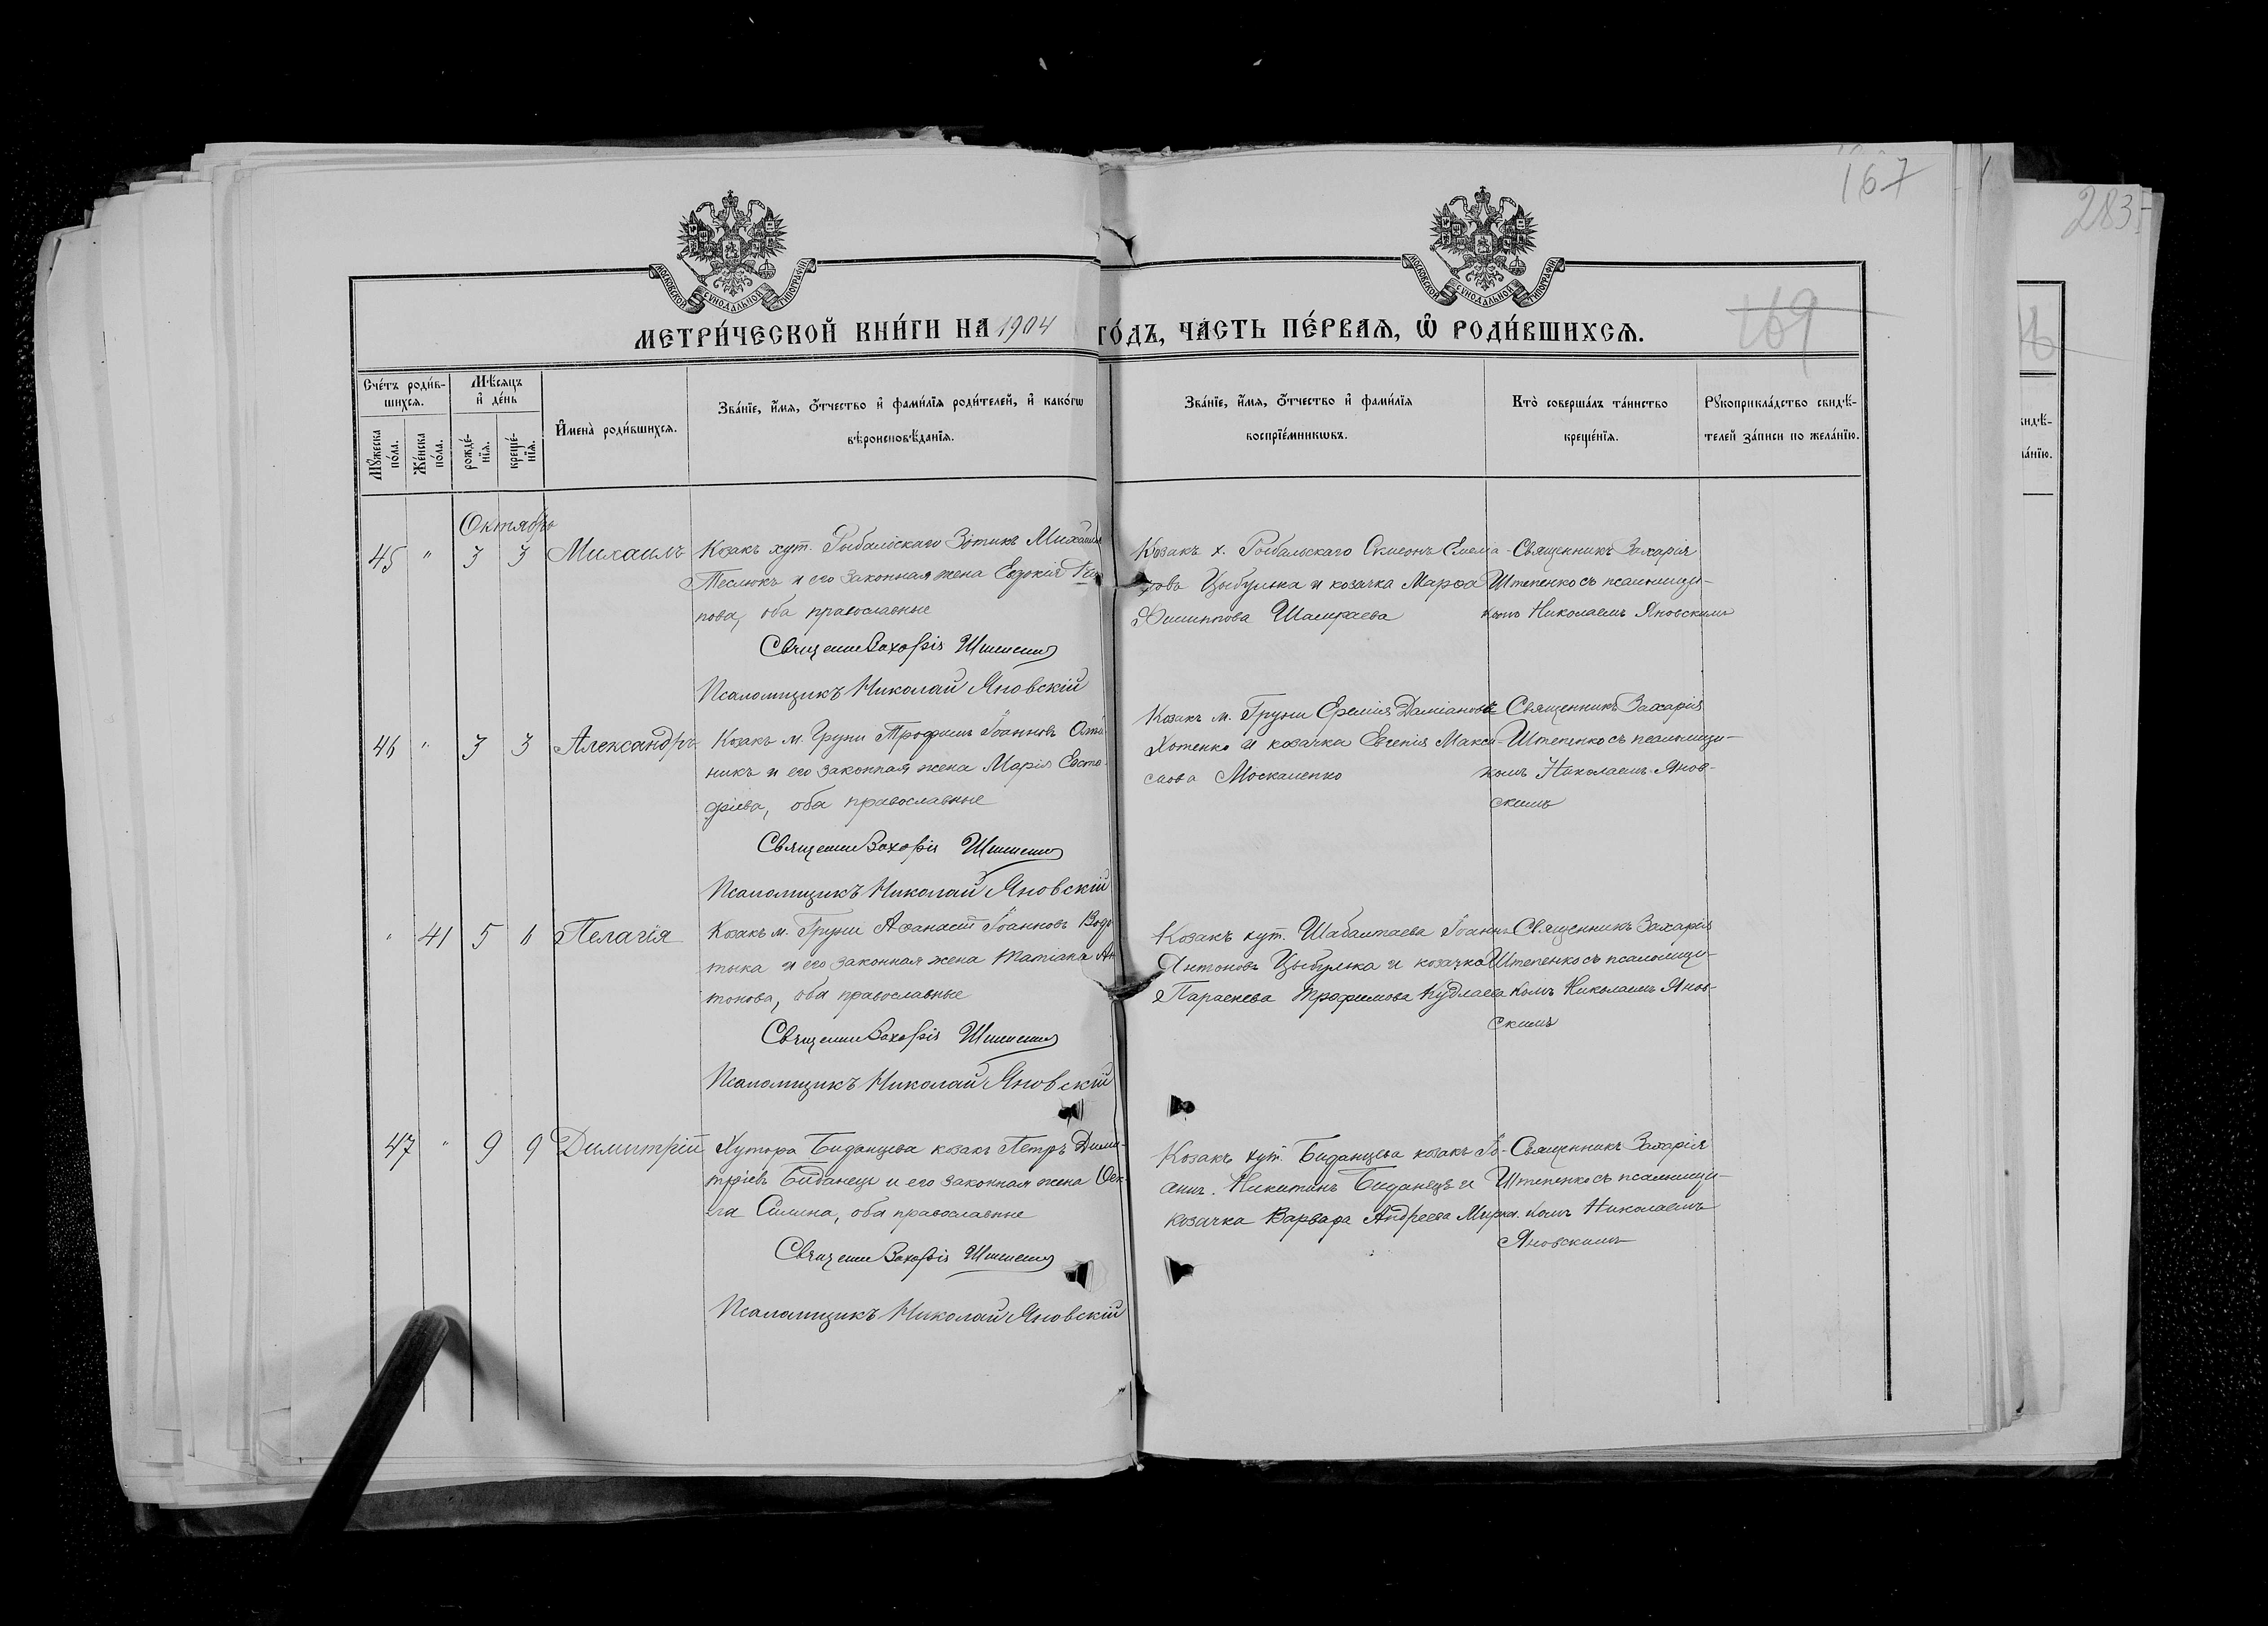 167
283
169
МОСКОВСКОЙ СѴНОДАЛЬНОЙ ТИПОГРАФІИ
МОСКОВСКОЙ СѴНОДАЛЬНОЙ ТИПОГРАФІИ
МЕТРИ́ЧЕСКОЙ КНИ́ГИ НА 1904 ГО́ДЪ, ЧА́СТЬ ПЕ́РВАѦ, Ѿ РОДИ́ВШИХСѦ.
Сче́тъ роди́в-
шихсѧ.
Мꙋжеска по́ла.
Же́нска по́ла.
Мѣ́сѧцъ
и҆ де́нь
рожде́-
нїѧ.
креще́-
нїѧ.
И҆мена̀ роди́вшихсѧ.
Зва́нїе, и҆́мѧ, ѻ҆́тчество и҆ фами́лїѧ роди́телей, и҆ како́гѡ
вѣроисповѣ́данїѧ.
Зва́нїе, и҆́мѧ, ѻ҆́тчество и҆ фами́лїѧ
воспрїе́мникѡвъ.
Кто̀ соверша́лъ та́инство
креще́нїѧ.
Рꙋкоприкла́дство свидѣ́-
телей за́писи по жела́нїю.
Октябрь
45 " 3 3 Михаилъ
Козакъ хут. Рыбальскаго Зотикъ Михаиловъ
Теслюкъ и его законная жена Евдокія
пова, оба православные
Священникъ Захарія Штепенко
Псаломщикъ Николай Яновскій
Козакъ х. Рыбальскаго Симеонъ
Цыбулька и козачка Марѳа
Филиппова
Священникъ Захарія
Штепенко съ псаломщи-
комъ Николаемъ Яновскимъ
46 " 3 3 Александръ
Козакъ м. Груни Трофимъ Іоанновъ
никъ и его законная жена Марія Евста-
фіева, оба православные
Священникъ Захарія Штепенко
Псаломщикъ Николай Яновскій
Козакъ м. Груни Еремія Даміановъ
Хотенко и козачка Евгенія Макси-
мова Москаленко
Священникъ Захарія
Штепенко съ псаломщи-
комъ Николаемъ Янов-
скимъ
" 41 5 Пелагія
Козакъ м. Груни Аѳанасій Іоанновъ
тыка и его законная жена Татіана Ан
тонова, оба православные
Священникъ Захарія Штепенко
Псаломщикъ Николай Яновскій
Козакъ хут. Шабалтаева Іоаннъ
Антоновъ Цыбулька и козачка
Параскева Трофимова Кудлаева
Священникъ Захарія
Штепенко съ псаломщи-
комъ Николаемъ Янов-
скимъ
47 " 9 9 Димитрій
Хутора Биданцева козакъ Петръ Дими-
тріевъ Биданецъ и его законная жена Ѳек-
ла Силина, оба православные
Священникъ Захарія Штепенко
Псаломщикъ Николай Яновскій
Козакъ хут. Биданцева козакъ Іо-
аннъ Никитинъ Биданецъ и
козачка Варвара Андреева
Священникъ Захарія
Штепенко съ псаломщи-
комъ Николаемъ
Яновскимъ